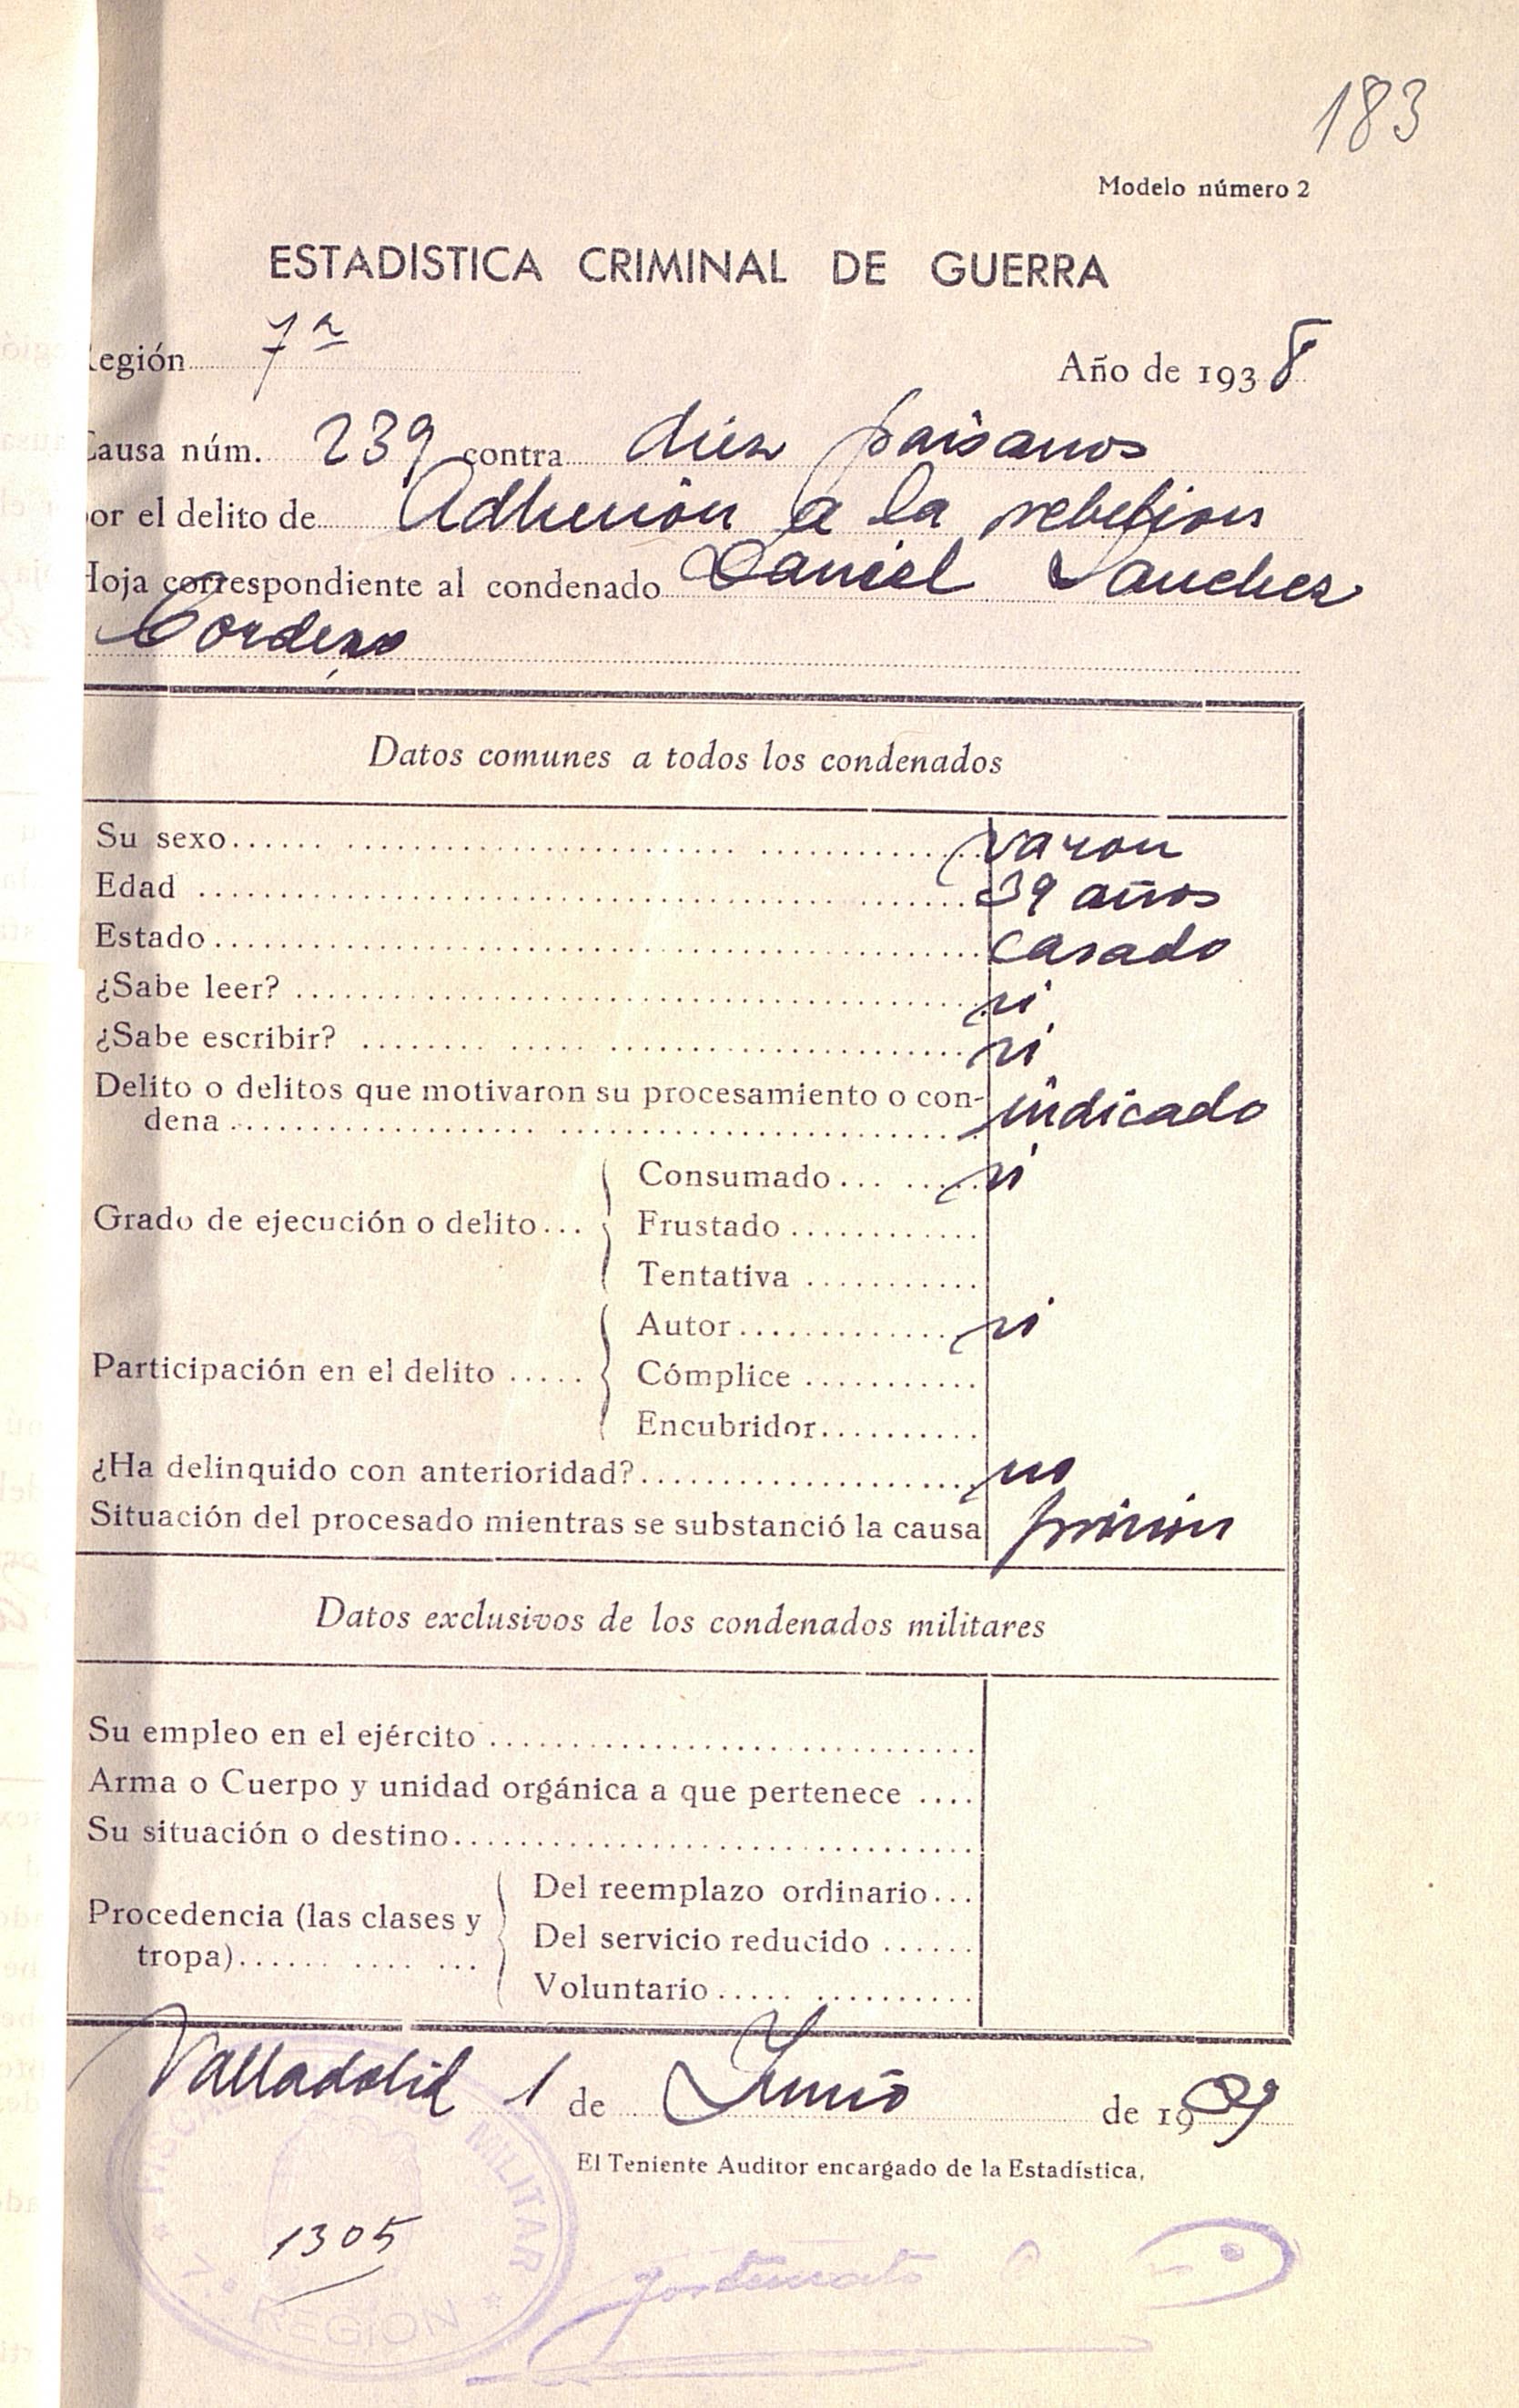 183
Modelo número 2
ESTADISTICA CRIMINAL DE GUERRA
Región 7ª Año de 1938
Causa núm. 239 contra diez paisanos
por el delito de Adhesión a la rebelion
Hoja correspondiente al condenado Daniel Sanchez
Cordero
Datos comunes a todos los condenados
Su sexo varon
Edad 39 años
Estado casado
¿Sabe leer? si
¿Sabe escribir? si
Delito o delitos que motivaron su procesamiento o con-
dena indicado
Consumado si
Grado de ejecución o delito Frustado
Tentativa
Autor si
Participación en el delito Cómplice
Encubridor
¿Ha delinquido con anterioridad? no
Situación del procesado mientras se substanció la causa prisión
Datos exclusivos de los condenados militares
Su empleo en el ejército
Arma o Cuerpo y unidad orgánica a que pertenece
Su situación o destino
Del reemplazo ordinario
Procedencia (las clases y
tropa) Del servicio reducido
Voluntario
Valladolid 1 de Junio de 1939
El Teniente Auditor encargado de la Estadística,
MILITAR
7.ª REGION
1305